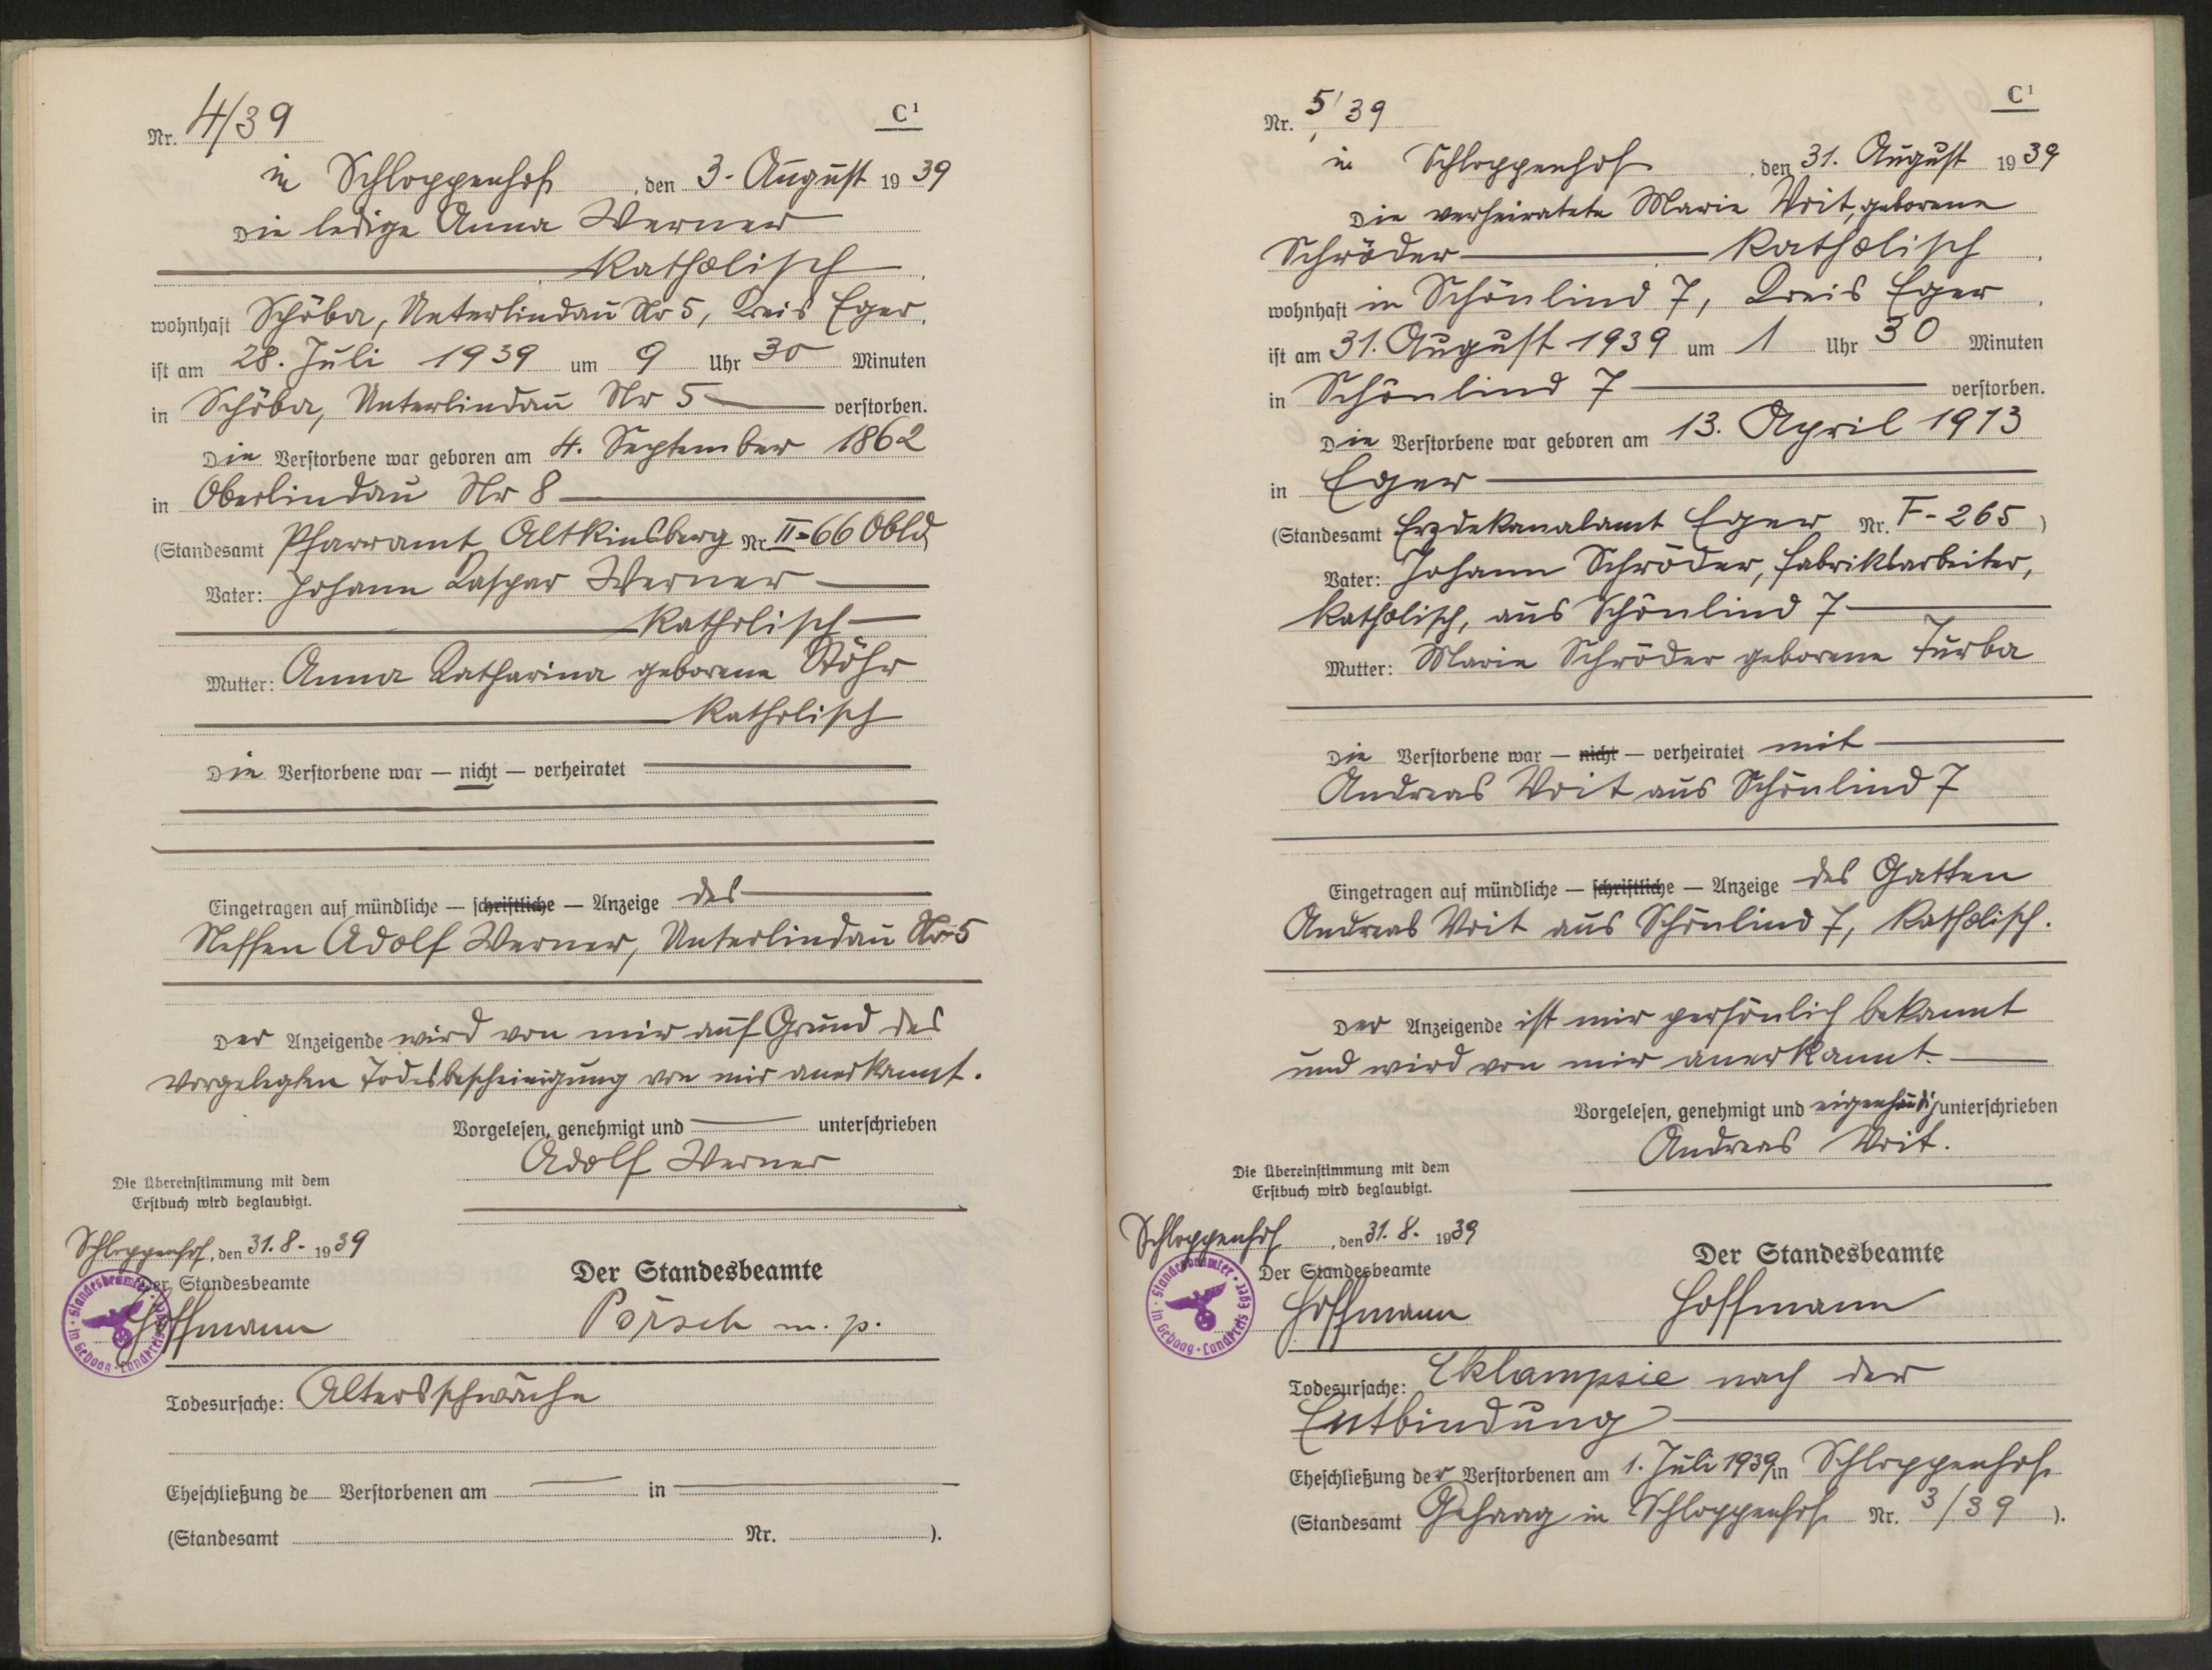 Nr. 4/39
C¹
in Schloppenhof, den 3. August 1939
Die ledige Anna Werner
katholisch,
wohnhaft Schöba, Unterlindau Nr 5, Kreis Eger,
ist am 28. Juli 1939 um 9 Uhr 30 Minuten
in Schöba, Unterlindau Nr 5 verstorben.
Die Verstorbene war geboren am 4. September 1862
in Oberlindau Nr 8
(Standesamt Pfarramt Altkinsberg Nr. II=66 Obld)
Vater: Johann Kaspar Werner
katholisch
Mutter: Anna Katharina geborene Stöhr
katholisch
Die Verstorbene war — nicht — verheiratet
Eingetragen auf mündliche — schriftliche — Anzeige des
Neffen Adolf Werner, Unterlindau Nr 5
Der Anzeigende wird von mir auf Grund des
vorgelegten Todesbescheinigung von mir anerkannt.
Vorgelesen, genehmigt und unterschrieben
Adolf Werner
Die Übereinstimmung mit dem
Erstbuch wird beglaubigt.
Schloppenhof, den 31.8. 1939
Der Standesbeamte
Hoffmann
Der Standesbeamte
Pörsch m. p.
Standesbeamter in Gehaag Landkreis Eger
Todesursache: Altersschwäche
Eheschließung de Verstorbenen am in
(Standesamt Nr. ).
Nr. 5/39
C¹
in Schloppenhof, den 31. August 1939
Die verheiratete Marie Voit, geborene
Schröder katholisch,
wohnhaft in Schönlind 7, Kreis Eger,
ist am 31. August 1939 um 1 Uhr 30 Minuten
in Schönlind 7 verstorben.
Die Verstorbene war geboren am 13. April 1913
in Eger
(Standesamt Erzdekanalamt Eger Nr. F-265)
Vater: Johann Schröder, Fabriksarbeiter,
katholisch, aus Schönlind 7
Mutter: Marie Schröder geborene Turba
Die Verstorbene war — nicht — verheiratet mit
Andreas Voit aus Schönlind 7
Eingetragen auf mündliche — schriftliche — Anzeige des Gatten
Andreas Voit aus Schönlind 7, katholisch.
Der Anzeigende ist mir persönlich bekannt
und wird von mir anerkannt.
Vorgelesen, genehmigt und eigenhändig unterschrieben
Andreas Voit.
Die Übereinstimmung mit dem
Erstbuch wird beglaubigt.
Schloppenhof, den 31. 8. 1939
Der Standesbeamte
Hoffmann
Der Standesbeamte
Hoffmann
Standesbeamter in Gehaag Landkreis Eger
Todesursache: Eklampsie nach der
Entbindung
Eheschließung der Verstorbenen am 1. Juli 1939 in Schloppenhof
(Standesamt Gehaag in Schloppenhof Nr. 3/39).